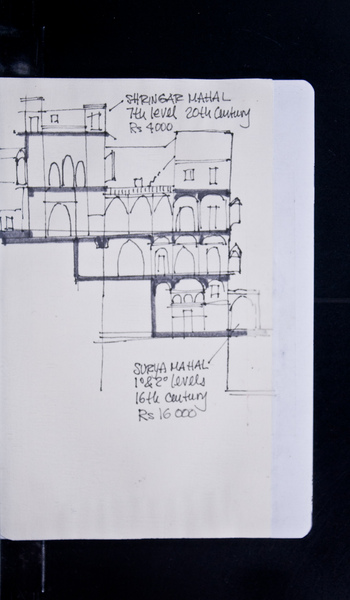 SHRINGAR MAHAL
7th level 20th Century
Rs 4000
SURYA MAHAL
1º & 2º levels
16th Century
Rs 16 000